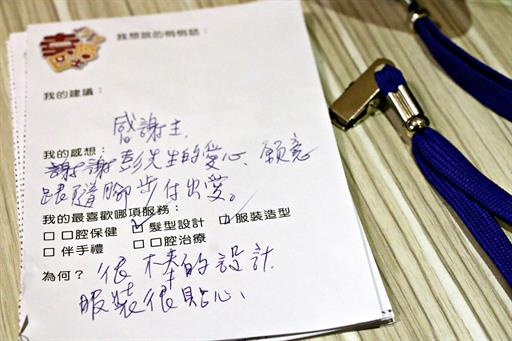 我想說的悄悄話：
我的建議：
感謝主、
我的感想：
謝謝彭先生的愛心、願意
跟隨腳步付出愛。
我的最喜歡哪項服務：
□口腔保健 □髮型設計 □服裝造型
□伴手禮 □口腔治療
為何？很棒的設計
服裝很貼心、